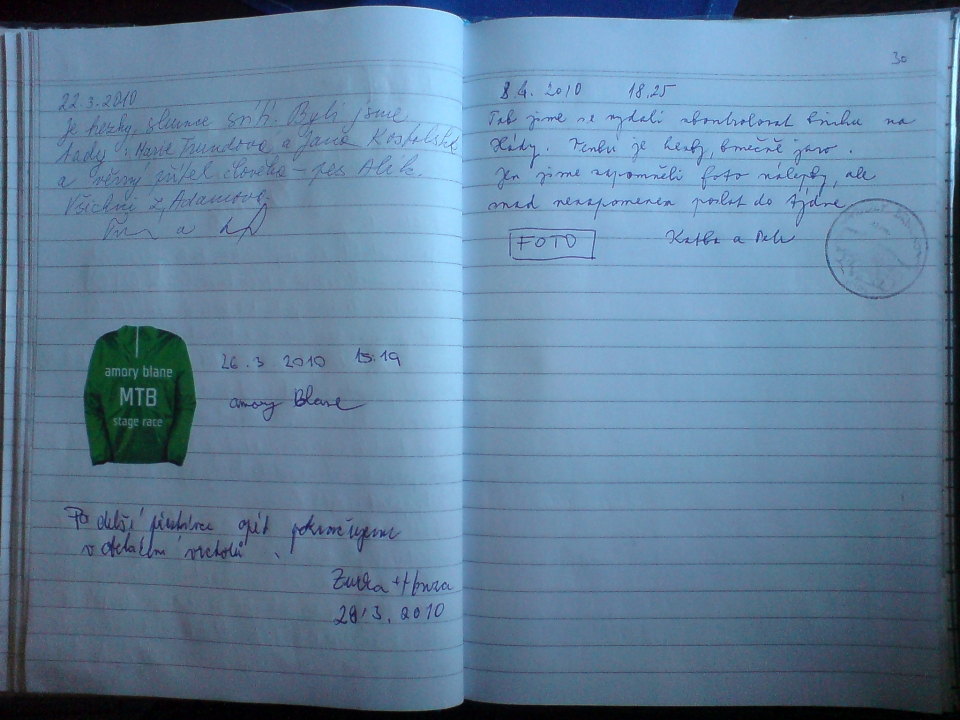 22.3.2010
Je hezky, slunce svítí. Byli jsme
tady: Hana a Jana
a věrný přítel člověka – pes Alík.
Všichni z Adamova.
a
amory blane
MTB
stage race
26.3 2010 15:19
amory Blane
Po delší přestávce opět pokračujeme
v vrcholů.
Zuzka + Honza
28.3.2010
30
8.4. 2010 18.25
Tak jsme se vydali zkontrolovat knihu na
Hády. Venku je hezky, konečně jaro.
Jen jsme zapomněli foto nálepky, ale
snad nezapomenem poslat do týdne
FOTO
Katka a Petr